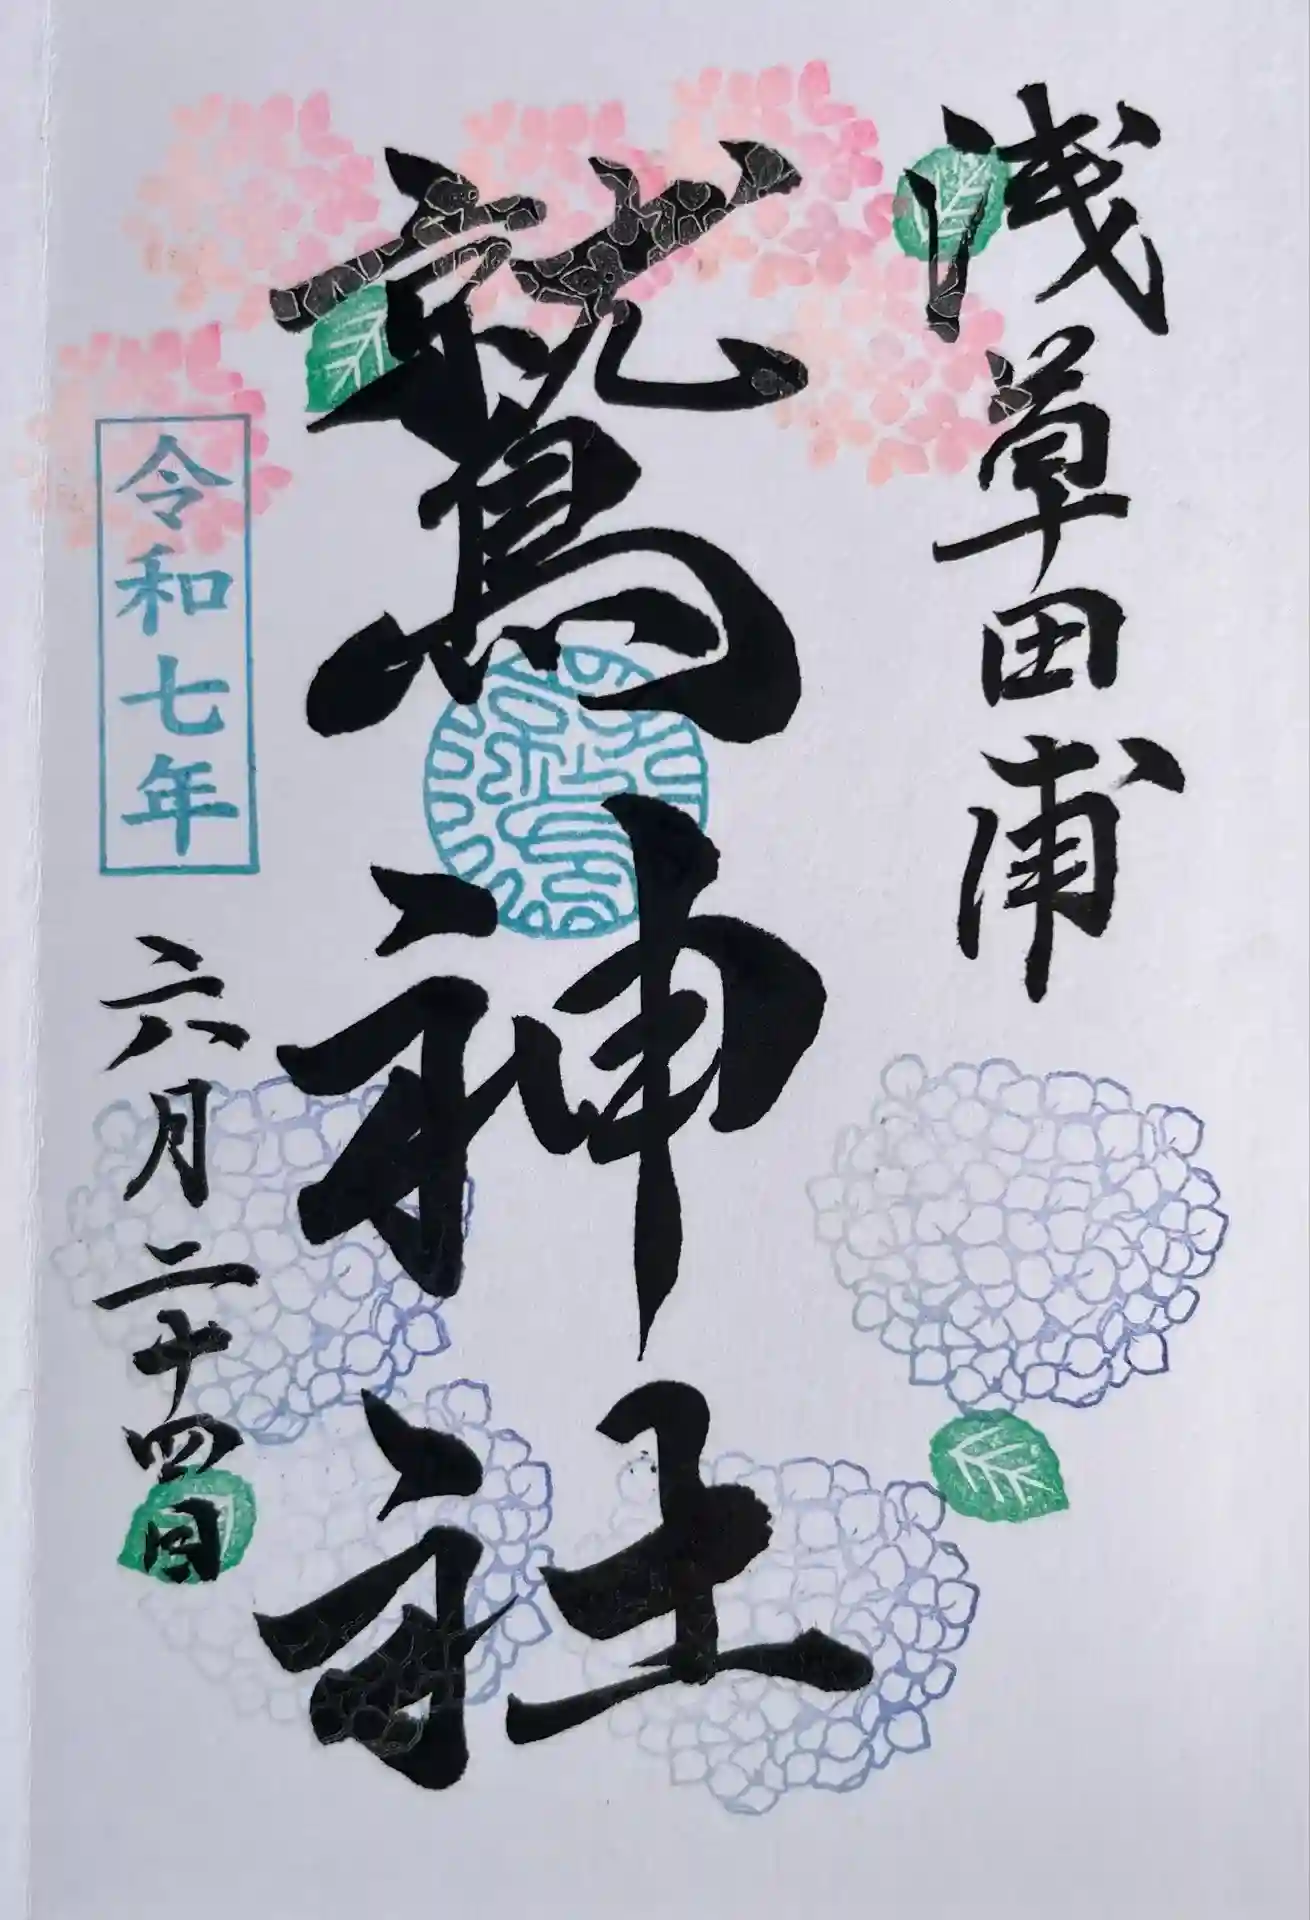 浅草田浦
鷲神社
令和七年
六月二十四日